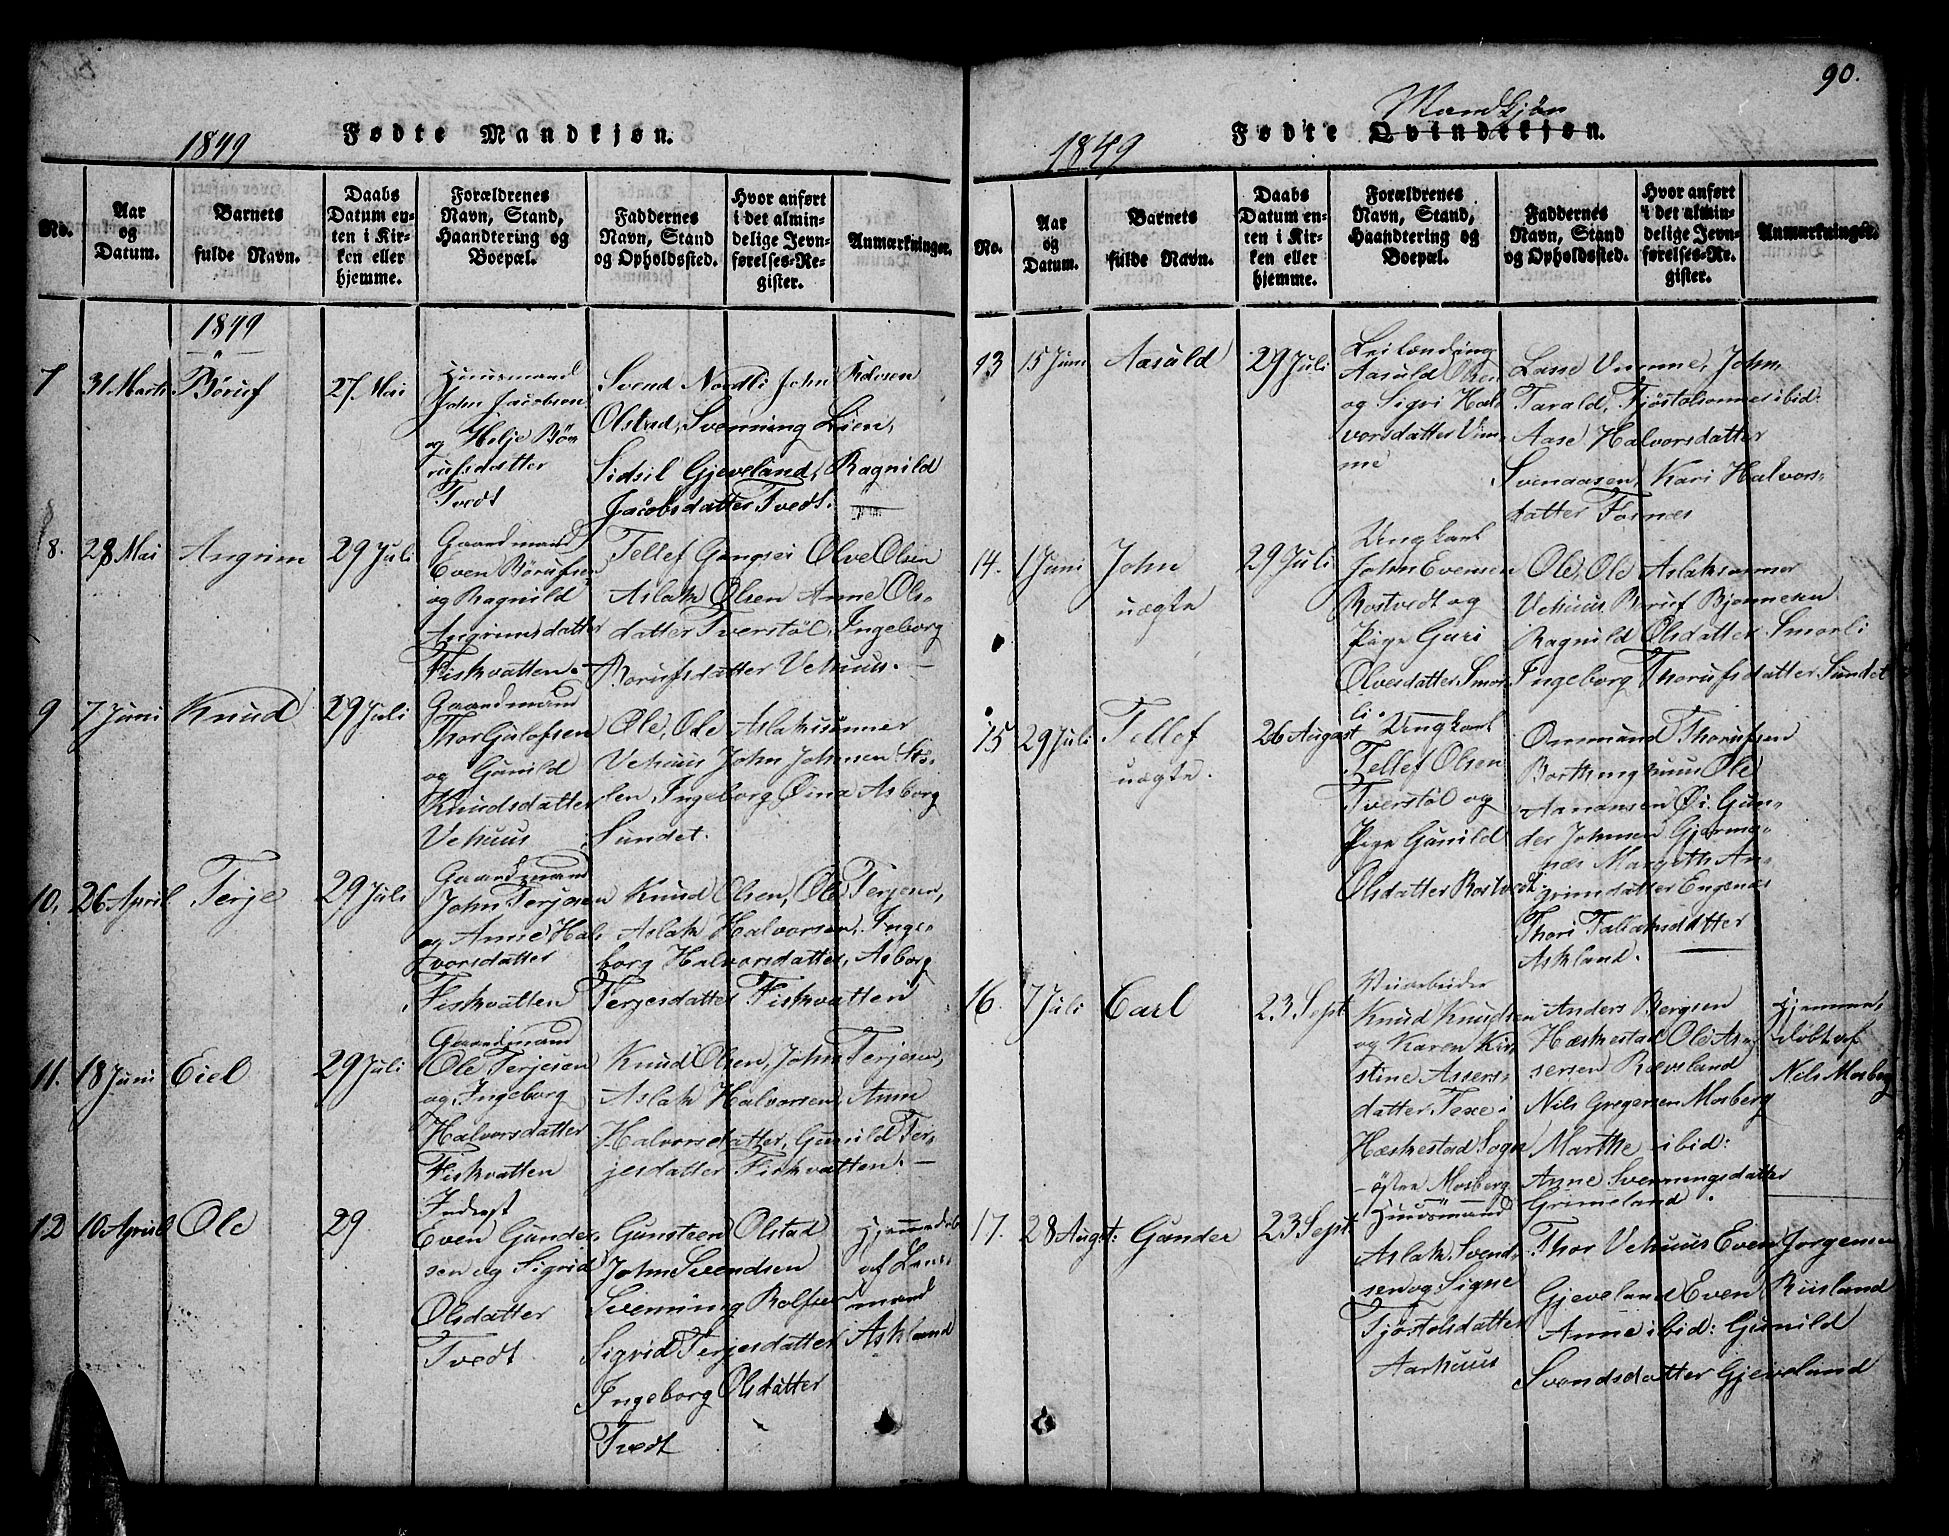 90.
1849
Fødte Mandkjøn.
No.
Aar og Datum.
Barnets fulde Navn.
Daabs Datum enten i Kirken eller hjemme.
Forældrenes Navn, Stand, Haandtering og Boepæl.
Faddernes Navn, Stand og Opholdssted.
Hvor anført i det almindelige Jevnførelses-Register.
Anmærkninger.
1849
7
31. Marts
Børuf
27. Mai
Huusmand
John Jacobsen
og Helje Bø-
rufsdatter
Tvedt
Svend Nordli John
Olstad, Svenning Lien,
Sidsil Gjeveland, Ragnild
Jacobsdatter Tvedt.
8.
28 Mai
Angrim
29 Juli
Gaardmand
Even Børufsen
og Ragnild
Angrimsdatter
Fiskvatten.
Tellef Gangsei Olve Olsen
Aslak Olsen Anne Ols-
datter Tverstøl, Ingeborg
Børufsdatter Vehuus.
9
7 Juni
Knud
29 Juli
Gaardmand
Thor
og Gunild
Knudsdatter
Vehuus
Ole, Ole Aslaksønner
Vehuus John Johnsen Stø-
len, Ingeborg Øina Asborg
Sundet.
10.
26 April
Terje
29 Juli
Gaardmand
John Terjesen
og Anne Hal-
vorsdatter
Fiskvatten
Knud Olsen, Ole Terjesen,
Aslak Halvorsen, Inge-
borg Halvorsdatter, Asborg
Terjesdatter Fiskvatten
11.
18 Juni
Eiel
29 Juli
Gaardmand
Ole Terjesen
og Ingeborg
Halvorsdatter
Fiskvatten
Knud Olsen, John Terjesen,
Aslak Halvorsen, Anne
Halvorsdatter, Gunild Ter-
jesdatter Fiskvatten.
12
10 April
Ole
29
Inderst
Even Gunder-
sen og Sigrid
Olsdatter
Tvedt
Gunsteen Olstad
John Svendsen
Svenning Rolfsen
Sigrid Terjesdatter
Ingeborg Olsdatter
Tvedt
Hjemmedøb
af Lens-
mand
Askland
1849
Mandkjøn
Fødte Qvindekjøn.
No.
Aar og Datum.
Barnets fulde Navn.
Daabs Datum enten i Kirken eller hjemme.
Forældrenes Navn, Stand, Haandtering og Boepæl.
Faddernes Navn, Stand og Opholdssted.
Hvor anført i det almindelige Jevnførelses-Register.
Anmærkninger.
13
15 Juni
Aasuld
29 Juli
Leilænding
Aasuld Olsen
og Sigri Hal-
vorsdatter Vim-
me
Lasse Vimme, John,
Tarald, Tjøstolsønner ibid:
Aase Halvorsdatter
Svenaasen, Kari Halvors-
datter Fosnæs
14.
1 Juni
John
uægte
29 Juli
Ungkarl
John Evensen
Rostvedt og
Pige Guri
Olvesdatter Smør-
li.
Ole, Ole Aslaksønner
Vehuus Børuf Bjønnesen
Ragnild Olsdatter Smørli
Ingeborg Thorufsdatter Sundet
15
29 Juli
Tellef
uægte.
26 August
Ungkarl
Tellef Olsen
Tverstøl og
Pige Gunild
Olsdatter Rostvedt
Ommund Thorufsen
Borthinghuus Ole
Aanansen Øi. Gun-
der Johnsen Gjerme-
næs Margethe An-
grimdatter Engenæs
Thori Tallaksdatter
Askland.
16.
7 Juli
Carl
23 Sept
Veiarbeider
Knud Knudsen
og Karen Kir-
stine Assers-
datter Texe i
Hæskestad Sogn
østre Mosberg
Anders Bergsen
Hæskestad Ole As-
sersen Rævsland
Nils Gregersen Mosberg
Marthe ibid:
Anne Svenningsdatter
Grimeland.
Hjemme-
døbt af
Nils Mosberg
17.
28 Augst:
Gunder
23 Sept
Huusmand
Aslak Svend-
sen og Signe
Tjøstolsdatter
Aarhuus
Thor Vehuus Even Jørgensen
Gjeveland Even Riisland
Anne ibid: Gunild
Svendsdatter Gjeveland